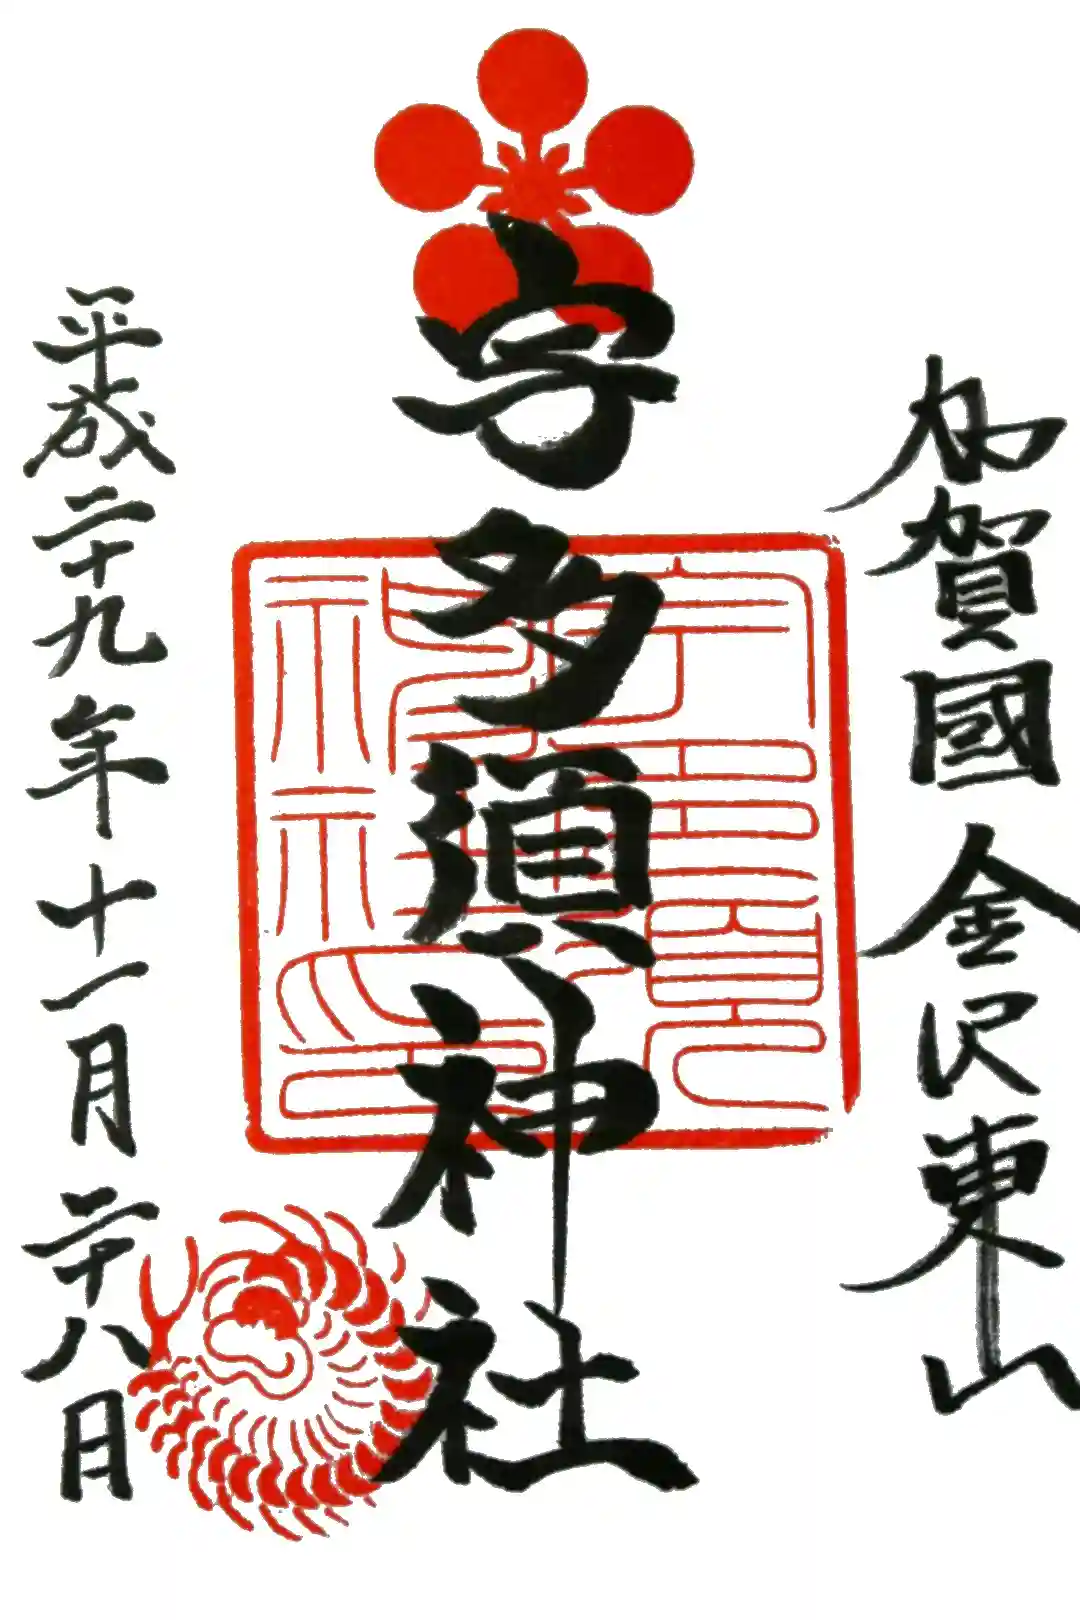 加賀國 金沢東山
宇多須神社
平成二十九年十一月二十八日